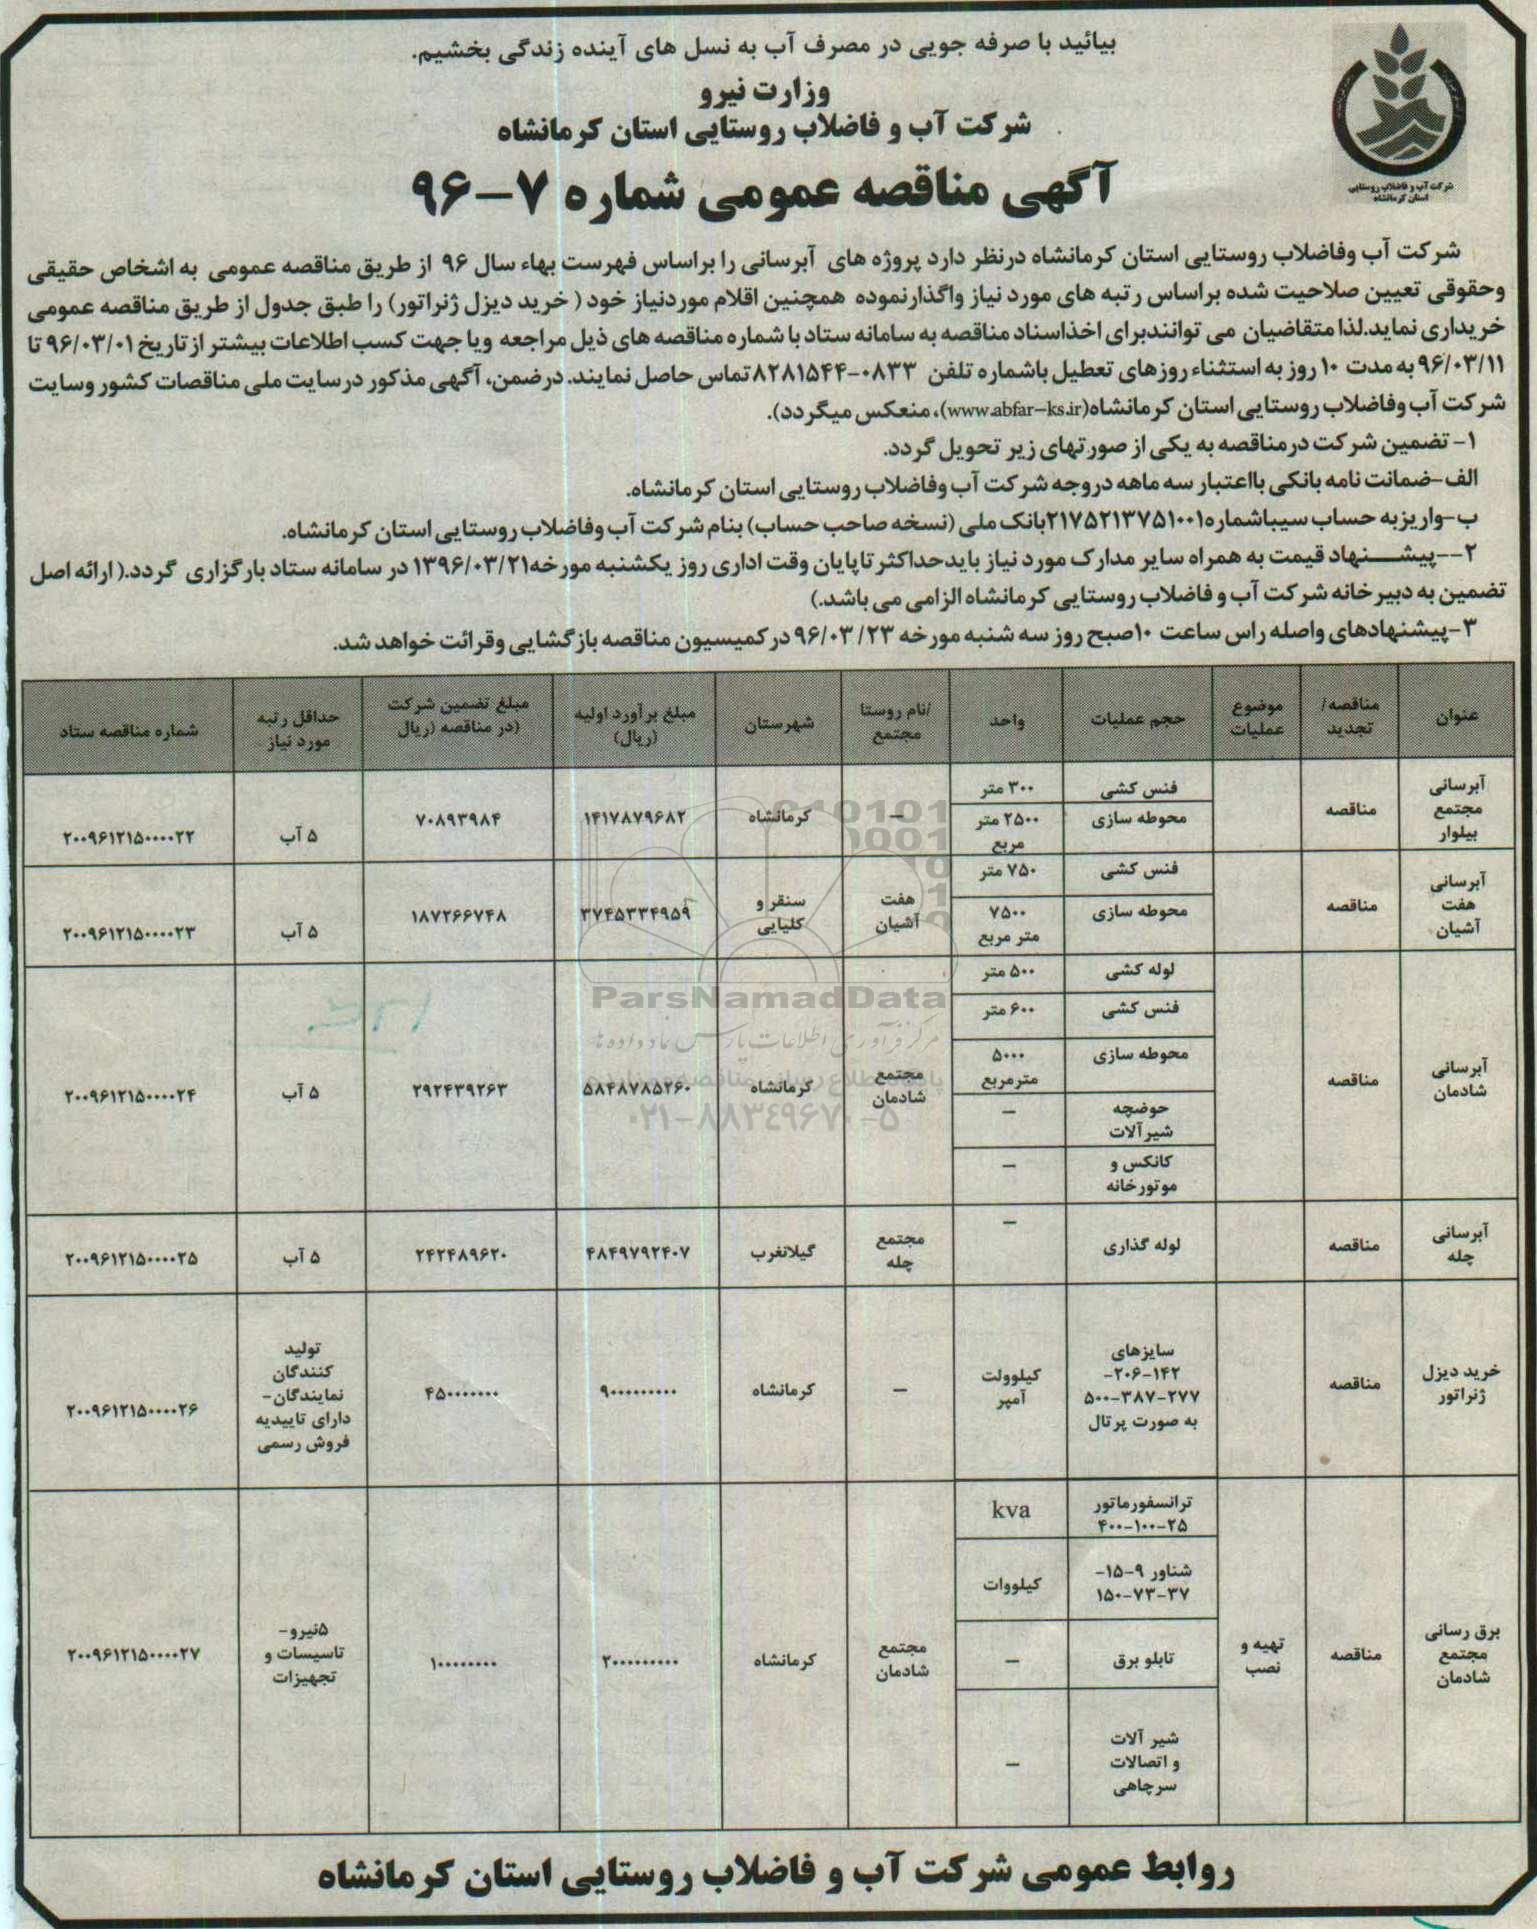 بیائید با صرفه جویی در مصرف آب به نسل های آینده زندگی بخشیم.
وزارت نیرو
شرکت آب و فاضلاب روستایی استان کرمانشاه
آگهی مناقصه عمومی شماره ۷-۹۶
شرکت آب و فاضلاب روستایی
استان کرمانشاه
شرکت آب وفاضلاب روستایی استان کرمانشاه درنظر دارد پروژه های آبرسانی را براساس فهرست بهاء سال ۹۶ از طریق مناقصه عمومی به اشخاص حقیقی
وحقوقی تعیین صلاحیت شده براساس رتبه های مورد نیاز واگذارنموده همچنین اقلام موردنیاز خود ( خرید دیزل ژنراتور) را طبق جدول از طریق مناقصه عمومی
خریداری نماید.لذا متقاضیان می توانندبرای اخذاسناد مناقصه به سامانه ستاد با شماره مناقصه های ذیل مراجعه ویا جهت کسب اطلاعات بیشتر از تاریخ ۹۶/۰۳/۰۱ تا
۹۶/۰۳/۱۱ به مدت ۱۰ روز به استثناء روزهای تعطیل باشماره تلفن ۰۸۳۳-۸۲۸۱۵۴۴ تماس حاصل نمایند. درضمن، آگهی مذکور درسایت ملی مناقصات کشور وسایت
شرکت آب وفاضلاب روستایی استان کرمانشاه(www.abfar-ks.ir)، منعکس میگردد).
۱- تضمین شرکت درمناقصه به یکی از صورتهای زیر تحویل گردد.
الف-ضمانت نامه بانکی بااعتبار سه ماهه دروجه شرکت آب وفاضلاب روستایی استان کرمانشاه.
ب-واریزبه حساب سیباشماره۲۱۷۵۲۱۳۷۵۱۰۰۱بانک ملی (نسخه صاحب حساب) بنام شرکت آب وفاضلاب روستایی استان کرمانشاه.
۲--پیشنهاد قیمت به همراه سایر مدارک مورد نیاز بایدحداکثر تاپایان وقت اداری روز یکشنبه مورخه۱۳۹۶/۰۳/۲۱ در سامانه ستاد بارگزاری گردد.( ارائه اصل
تضمین به دبیرخانه شرکت آب و فاضلاب روستایی کرمانشاه الزامی می باشد.)
۳-پیشنهادهای واصله راس ساعت ۱۰صبح روز سه شنبه مورخه ۹۶/۰۳/۲۳ درکمیسیون مناقصه بازگشایی وقرائت خواهد شد.
عنوان | مناقصه/ تجدید | موضوع عملیات | حجم عملیات | واحد | /نام روستا مجتمع | شهرستان | مبلغ برآورد اولیه (ریال) | مبلغ تضمین شرکت (در مناقصه (ریال | حداقل رتبه مورد نیاز | شماره مناقصه ستاد
آبرسانی مجتمع بیلوار | مناقصه | فنس کشی | ۳۰۰ متر | – | کرمانشاه | ۱۴۱۷۸۷۹۶۸۲ | ۷۰۸۹۳۹۸۴ | ۵ آب | ۲۰۰۹۶۱۲۱۵۰۰۰۰۲۲
محوطه سازی | ۲۵۰۰ متر مربع
آبرسانی هفت آشیان | مناقصه | فنس کشی | ۷۵۰ متر | هفت آشیان | سنقر و کلیایی | ۳۷۴۵۳۳۴۹۵۹ | ۱۸۷۲۶۶۷۴۸ | ۵ آب | ۲۰۰۹۶۱۲۱۵۰۰۰۰۲۳
محوطه سازی | ۷۵۰۰ متر مربع
آبرسانی شادمان | مناقصه | لوله کشی | ۵۰۰ متر | مجتمع شادمان | کرمانشاه | ۵۸۴۸۷۸۵۲۶۰ | ۲۹۲۴۳۹۲۶۳ | ۵ آب | ۲۰۰۹۶۱۲۱۵۰۰۰۰۲۴
فنس کشی | ۶۰۰ متر
محوطه سازی | ۵۰۰۰ مترمربع
حوضچه شیرآلات | –
کانکس و موتورخانه | –
آبرسانی چله | مناقصه | لوله گذاری | – | مجتمع چله | گیلانغرب | ۴۸۴۹۷۹۲۴۰۷ | ۲۴۲۴۸۹۶۲۰ | ۵ آب | ۲۰۰۹۶۱۲۱۵۰۰۰۰۲۵
خرید دیزل ژنراتور | مناقصه | سایزهای ۱۴۲-۲۰۶-۲۷۷-۳۸۷-۵۰۰ به صورت پرتال | کیلوولت آمپر | – | کرمانشاه | ۹۰۰۰۰۰۰۰۰۰ | ۴۵۰۰۰۰۰۰۰ | تولید کنندگان نمایندگان- دارای تاییدیه فروش رسمی | ۲۰۰۹۶۱۲۱۵۰۰۰۰۲۶
برق رسانی مجتمع شادمان | مناقصه | تهیه و نصب | ترانسفورماتور ۲۵-۱۰۰-۴۰۰ | kva | مجتمع شادمان | کرمانشاه | ۲۰۰۰۰۰۰۰۰۰ | ۱۰۰۰۰۰۰۰۰ | ۵نیرو- تاسیسات و تجهیزات | ۲۰۰۹۶۱۲۱۵۰۰۰۰۲۷
شناور ۹-۱۵-۳۷-۷۳-۱۵۰ | کیلووات
تابلو برق | –
شیر آلات و اتصالات سرچاهی | –
ParsNamadData
مرکز فرآوری اطلاعات پارس نماد داده ها
۰۲۱-۸۸۳۴۹۶۷۰-۵
روابط عمومی شرکت آب و فاضلاب روستایی استان کرمانشاه